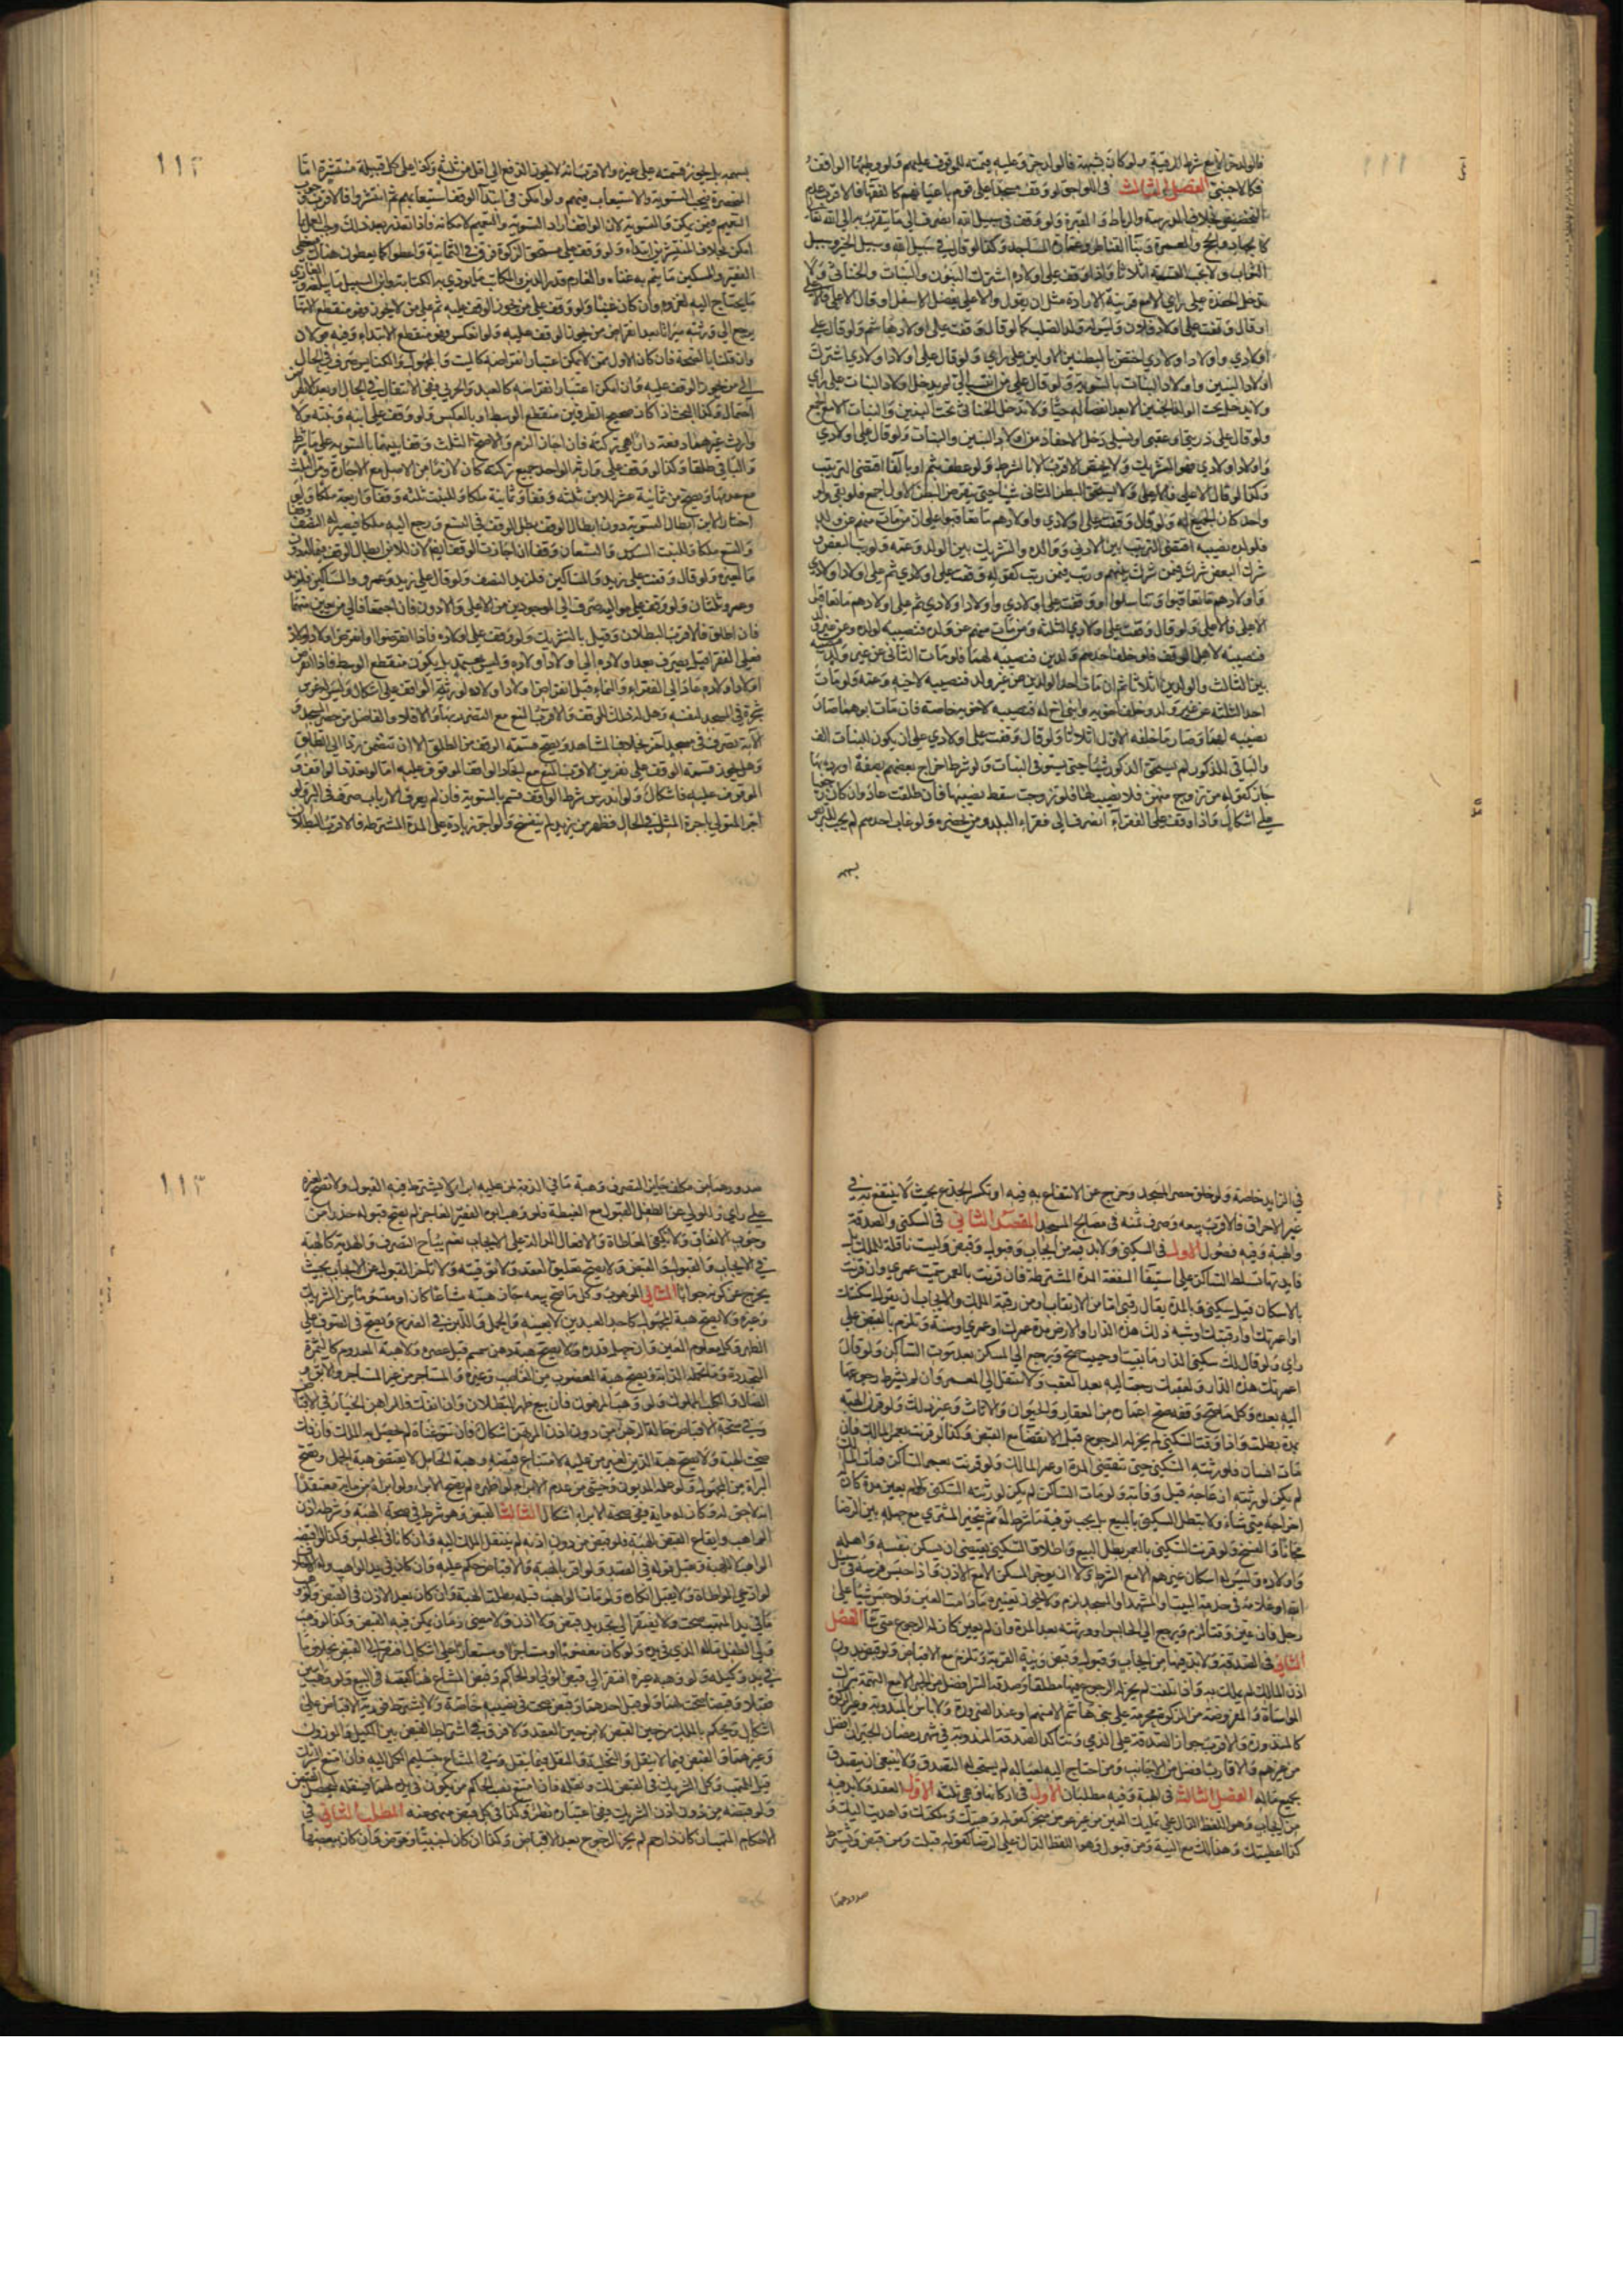 فالولد حر الا مع شرط الرقية ولو كان بشبهة فالولد حر وعليه قيمته للموقوف عليهم ولو وطئها الواقف
فكالاجنبي الفصل الثالث في اللواحق لو وقف مسجدا على قوم باعيانهم كالفقهاء فالاقرب عدم
التخصيص بخلاف المدرسة والرباط والمقبرة ولو وقف في سبيل الله انصرف الى ما يتقرب به الى الله تعالى
كالجهاد والحج والعمرة وبناء القناطر وعمارة المساجد وكذا لو قال في سبيل الله وسبيل الخير وسبيل
الثواب ولا يجب القسمة اثلاثا ولو وقف على اولاده اشترك البنون والبنات والخناثى ولا
تدخل الحفدة على راي الا مع قرينة الارادة مثل ان يقول الاعلى يفضل الاسفل او قال الاعلى فالاعلى
او قال وقفت على اولاد فلان وليس له ولد الصلب كما لو قال وقفت على اولاد هاشم ولو قال على
اولادي واولاد اولادي اختص بالبطنين الاولين على راي ولو قال على اولاد اولادي اشترك
اولاد البنين واولاد البنات بالسوية ولو قال على من انتسب الي لم يدخل اولاد البنات على راي
ولا يدخل تحت الولد الجنين الا بعد انفصاله حيا ولا تدخل الخناثى تحت البنين والبنات الا مع الجمع
ولو قال على ذريتي او عقبي او نسلي دخل الاحفاد من اولاد البنين والبنات ولو قال على اولادي
واولاد اولادي فهو للتشريك ولا يختص الاقرب الا بالشرط ولو عطف بثم او بالفاء اقتضى الترتيب
وكذا لو قال الاعلى فالاعلى ولا يستحق البطن الثاني شيئا حتى ينقرض البطن الاول اجمع فلو بقي واحد
واحد كان الجميع له ولو قال وقفت على اولادي واولادهم ما تعاقبوا على ان من مات منهم عن ولد
فلولده نصيبه اقتضى الترتيب بين الادنى ووالده والتشريك بين الولد وعمه ولو رتب البعض و
شرك البعض شرك فيمن شرك بينهم ورتب فيمن رتب كقوله وقفت على اولادي ثم على اولاد اولادي
واولادهم ما تعاقبوا وتناسلوا او وقفت على اولادي واولاد اولادي ثم على اولادهم ما تعاقبوا
الاعلى فالاعلى ولو قال وقفت على اولادي الثلثة ومن مات منهم عن ولده فنصيبه لولده وعن غير ولد
فنصيبه لاهل الوقف فلو خلف احدهم ولدين فنصيبه لهما فلو مات الثاني عن غير ولد
بين الثالث والولدين اثلاثا ثم ان مات احد الولدين عن غير ولد فنصيبه لاخيه وعمه ولو مات
احد الثلثة عن غير ولد وخلف اخويه وابني اخ له فنصيبه لاخويه خاصة فان مات ابوهما صار
نصيبه لهما وصار ما خلفه الاول اثلاثا ولو قال وقفت على اولادي على ان يكون للبنات الف
والباقي للذكور لم يستحق الذكور شيئا حتى يستوفي البنات ولو شرط اخراج بعضهم بصفة او ردها
جاز كقوله من تزوج منهن فلا نصيب لها فلو تزوجت سقط نصيبها فان طلقت عاد وان كان
على اشكال واذا وقف على الفقراء انصرف الى فقراء البلد ومن يحضره ولو غاب احدهم لم يجب
بسهمه
١١٢
بسهمه بل يجوز قسمته على غيره والاقرب انه لا يجوز الدفع الى اقل من ثلثة وكذا على كل قبيلة منتشرة اما
المنحصرة فيجب التسوية والاستيعاب فيهم ولو امكن في ابتداء الوقف استيعابهم ثم انتشروا فالاقرب وجوب
التعميم فيمن يمكن والتسوية لان الواقف اراد التسوية والتعميم لامكانه فاذا تعذر بعد ذلك وجب العمل بما
امكن بخلاف المنتشرين ابتداء ولو وقف على مستحق الزكوة فرق في الثمانية واعطوا كما يعطون هناك فيعطى
الفقير والمسكين ما يتم به غناه والغارم قدر الدين والمكاتب ما يؤدي به الكتابة وابن السبيل ما يبلغه والغازي
ما يحتاج اليه لغزوه وان كان غنيا ولو وقف على من يجوز الوقف عليه ثم على من لا يجوز فهو منقطع الانتهاء
يرجع الى ورثته ميراثا بعد انقراض من يجوز الوقف عليه ولو انعكس فهو منقطع الابتداء وفيه قولان
وان قلنا بالصحة فان كان الاول ممن لا يمكن اعتبار انقراضه كالميت والمجهول والكنايس صرف في الحال
الى من يجوز الوقف عليه وان امكن اعتبار انقراضه كالعبد والحربي ففي الانتقال في الحال او بعد الانقراض
احتمال وكذا البحث اذا كان صحيح الطرفين منقطع الوسط او بالعكس ولو وقف على ابنه وبنته ولا
وارث غيرهما دفعة دارا هي تركته فان اجازا لزم والا صح في الثلث وقفا بينهما بالتسوية على ما شرط
والباقي طلقا وكذا لو وقف على وارثه الواحد جميع تركته كان لازما من الاصل مع الاجازة ومن الثلث
مع عدمها وتصح من ثمانية عشر للابن ثلثه وقفا وثمانية ملكا وللبنت ثلثه وقفا واربعة ملكا ولو
اختار الابن ابطال التسوية دون ابطال الوقف بطل الوقف في التسع ورجع اليه ملكا فيصير له النصف
والتسع ملكا وللبنت السدس والتسعان وقفا ان اجازت الوقف
ما لغيره ولو قال وقفت على زيد والمساكين فلزيد النصف ولو قال على زيد وعمرو والمساكين فلزيد
وعمرو ثلثان ولو وقف على مواليه صرف الى الموجودين من الاعلى والادون فان اجتمعا فالى من عين منهما
فان اطلق فالاقرب البطلان وقيل بالتشريك ولو وقف على اولاده فاذا انقرضوا وانقرض اولاد اولاده
فعلى الفقراء قيل يصرف بعد اولاده الى اولاد اولاده وليس بمعتمد بل يكون منقطع الوسط فاذا انقرض
اولاد اولاده عاد الى الفقراء والنماء قبل انقراض اولاد اولاده لورثة الواقف على اشكال وليس لغرس
شجرة في المسجد لنفسه وهل له ذلك للوقف والاقرب المنع مع التضرر بها والا فلا والفاضل من حصر المسجد و
الاته يصرف في مسجد اخر بخلاف المشاهد ويصح قسمة الوقف من الطلق الا ان تتضمن ردا الى الطلق
وهل يجوز قسمة الوقف على نفرين الاقرب المنع مع اتحاد الواقف الموقوف عليه اما لو تعدد الواقف و
الموقوف عليه فاشكال ولو اندرس شرط الواقف قسم بالسوية فان لم يعرف الارباب صرف في البر ولو
اجر المتولي باجرة المثل في الحال فظهر من يزيد لم ينفسخ والواجر زيادة على المدة المشترطة فالاقرب البطلان
في الزايد خاصة ولو خلق حصر المسجد وخرج عن الانتفاع به فيه او تكسر الجذع بحيث لا ينتفع به في
غير الاحراق فالاقرب بيعه وصرف ثمنه في مصالح المسجد المقصد الثاني في السكنى والصدقة
والهبة وفيه فصول الاول في السكنى ولا بد فيه من ايجاب وقبول وقبض وليست ناقلة للملك بل
فايدتها تسلط الساكن على استيفاء المنفعة المدة المشترطة فان قرنت بالعمر سميت عمرى وان قرنت
بالاسكان قيل سكنى وبالمدة يقال رقبى اما من الارتقاب او من رقبة الملك والايجاب ان يقول اسكنتك
او اعمرتك او ارقبتك وشبه ذلك هذه الدار او الارض مدة عمرك او عمري او سنة وتلزم بالقبض على
راي ولو قال لك سكنى الدار ما بقيت او حييت صح ويرجع الى المسكن بعد موت الساكن ولو قال
اعمرتك هذه الدار ولعقبك رجعت اليه بعد العقب ولا تنتقل الى المعمر وان لم يشرط رجوعها
اليه بعده وكل ما صح وقفه صح اعماره من العقار والحيوان والاثاث وغير ذلك ولو قرن الهبة
بمدة بطلت واذا وقت السكنى لم يجز له الرجوع قبل الانقضاء مع القبض وكذا لو قرنت بعمر المالك فان
مات انسان فلورثته السكنى حتى تنقضي المدة او عمر المالك ولو قرنت بعمر الساكن فمات المالك
لم يكن لورثته ازعاجه قبل وفاته ولو مات الساكن لم يكن لورثته السكنى ولو لم يعين مدة كان له
اخراجه متى شاء ولا تبطل السكنى بالبيع بل يجب توفية ما شرط له ثم يتخير المشتري مع جهله بين الرضا
مجانا والفسخ ولو قرنت السكنى بالعمر بطل البيع واطلاق السكنى يقتضي ان يسكن بنفسه واهله
واولاده وليس له اسكان غيرهم الا مع الشرط ولا ان يوجر السكن الا مع الاذن واذا حبس فرسه في سبيل
الله او غلامه في خدمة البيت او المشهد او المسجد لزم ولا يجوز تغييره ما دامت العين ولو حبس شيئا على
رجل فان عين وقتا لزم ويرجع الى الحابس او ورثته بعد المدة وان لم يعين كان له الرجوع متى شاء الفصل
الثاني في الصدقة ولا بد فيها من ايجاب وقبول وقبض ونية القربة وتلزم مع الاقباض ولو قبض بدون
اذن المالك لم يملك به واذا تمت لم يجز له الرجوع فيها مطلقا وصدقة السر افضل من الجهر الا مع التهمة بترك
المواساة والمفروضة من الزكوة محرمة على بني هاشم الا منهم او عند الضرورة ولا باس بالمندوبة وغير الزكوة
كالمنذورة والاقرب جواز الصدقة على الذمي وتتاكد الصدقة المندوبة في شهر رمضان الجيران افضل
من غيرهم والاقارب افضل من الاجانب ومن احتاج اليه لعياله لم يستحب له التصدق ولا ينبغي ان يتصدق
بجميع ماله الفصل الثالث في الهبة وفيه مطلبان الاول في اركانها وهي ثلثة الاول العقد ولا بد فيه
من ايجاب وهو اللفظ الدال على تمليك العين من غير عوض منجزا كقوله وهبتك وملكتك واهديت اليك و
كذا اعطيتك وهذا لك مع النية ومن قبول وهو اللفظ الدال على الرضا كقوله قبلت ومن قبض ويشترط
صدورهما
١١٣
صدورهما من مكلف جايز التصرف وهبة ما في الذمة لمن عليه ابراء لا يشترط فيه القبول ولا تصح لغيره
على راي وللولي عن الطفل القبول مع الغبطة فلو وهب ابوه الفقير العاجز لم يصح قبوله حذرا من
وجوب الانفاق ولا تكفي المعاطاة والافعال الدالة على الايجاب نعم يباح التصرف والهدية كالهبة
في الايجاب والقبول والقبض ولا يصح تعليق العقد ولا توقيته ولا تاخر القبول عن الايجاب بحيث
يخرج عن كونه جوابا الثاني الموهوب وكل ما صح بيعه جاز هبته مشاعا كان او مقسوما من الشريك
وغيره ولا يصح هبة المجهول كاحد العبدين لا بعينه والحمل واللبن في الضرع وتصح في الصوف على
الظهر وكل معلوم العين وان جهل قدره ولا تصح هبة دهن سمسم قبل عصره ولا هبة المعدوم كالثمرة
المتجددة وما تحمله الدابة وتصح هبة المغصوب من الغاصب وغيره والمستاجر من غير المستاجر والابق و
الضال والكلب المملوك ولو وهب المرهون فان بيع ظهر البطلان وان انفك فللراهن الخيار في الاقباض
وفي صحة الاقباض حالة الرهن من دون اذن المرتهن اشكال فان سوغناه لم يحصل به الملك فان فك
صحت الهبة ولا تصح هبة الدين لغير من عليه لامتناع قبضه وهبة الحامل لا يقتضي هبة الحمل وتصح
البراءة من المجهول ولو علمه المديون وخشي من عدم الابراء لو اظهره لم يصح الابراء ولو ابراه من ماية معتقدا
انه لا حق له وكان له ماية ففي صحة الابراء اشكال الثالث القبض وهو شرط في صحة الهبة وشرطه اذن
الواهب وايقاع القبض للهبة فلو قبض من دون اذنه لم ينتقل الملك اليه وان كانا في المجلس وكذا لو اقبضه
الواهب لا للهبة ويقبل قوله في القصد ولو اقر بالهبة والاقباض حكم عليه وان كان في يد الواهب وله الاحلاف
لو ادعى المواطاة ولا يقبل انكاره ولو مات الواهب قبله بطلت الهبة وان كان بعد الاذن في القبض ولو وهب
ما في يد المتهب صحت ولا يفتقر الى تجديد قبض ولا اذن ولا مضي زمان يمكن فيه القبض وكذا لو وهب
ولي الطفل ماله الذي في يده ولو كان مغصوبا او مستاجرا او مستعارا على اشكال افتقر الى القبض بخلاف ما
في يد وكيله ولو وهبه غيره افتقر الى قبض الولي او الحاكم وقبض المشاع هنا كقبضه في البيع ولو وهب اثنين
فقبلا وقبضا صحت لهما ولو قبل احدهما وقبض صحت في نصيبه خاصة ولا يشترط فورية الاقباض على
اشكال ويحكم بالملك من حين القبض لا من حين العقد ولا فرق في اشتراط القبض بين المكيل والموزون
وغيرهما والقبض فيما لا ينقل التخلية والنقل فيما ينقل وفي المشاع تسليم الكل اليه فان امتنع الشريك
قيل للمتهب وكل الشريك في القبض لك ونقله فان امتنع نصب الحاكم من يكون في يده لهما فينقله ليحصل القبض
ولو قبضه من دون اذن الشريك ففي اعتباره نظر وكذا في كل قبض منهي عنه المطلب الثاني في
الاحكام المتهب ان كان ذا رحم لم يجز الرجوع بعد الاقباض وكذا ان كان اجنبيا وعوض وان كان ببعضها